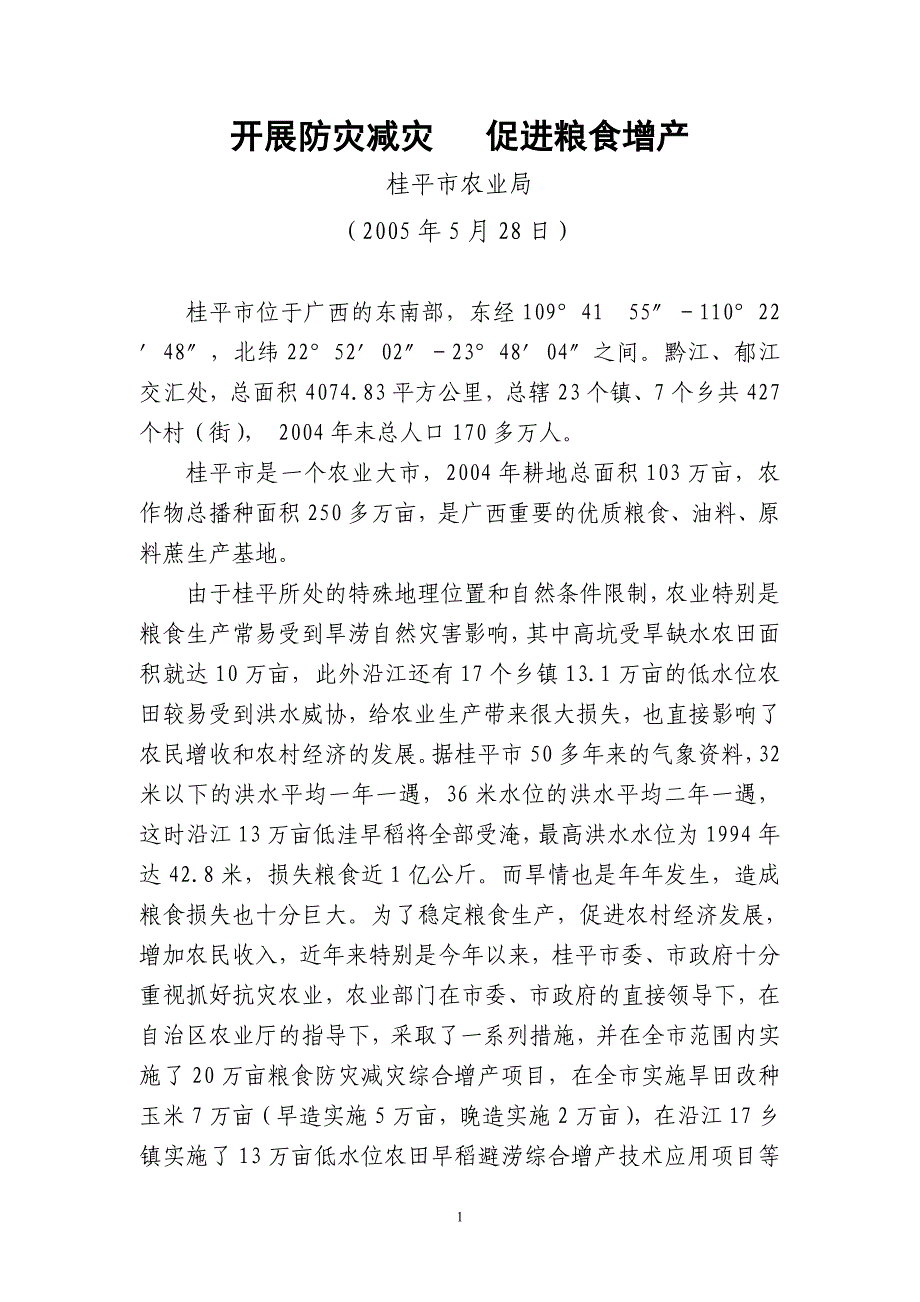 开展防灾减灾　 促进粮食增产
桂平市农业局
（2005 年 5 月 28 日）
桂平市位于广西的东南部，东经 109° 41　55″－110° 22
′ 48″，北纬 22° 52′ 02″－23° 48′ 04″之间。黔江、郁江
交汇处，总面积 4074.83 平方公里，总辖 23 个镇、7 个乡共 427
个村（街）， 2004 年末总人口 170 多万人。
桂平市是一个农业大市，2004 年耕地总面积 103 万亩，农
作物总播种面积 250 多万亩，是广西重要的优质粮食、油料、原
料蔗生产基地。
由于桂平所处的特殊地理位置和自然条件限制，农业特别是
粮食生产常易受到旱涝自然灾害影响，其中高坑受旱缺水农田面
积就达 10 万亩，此外沿江还有 17 个乡镇 13.1 万亩的低水位农
田较易受到洪水威协，给农业生产带来很大损失，也直接影响了
农民增收和农村经济的发展。据桂平市 50 多年来的气象资料，32
米以下的洪水平均一年一遇，36 米水位的洪水平均二年一遇，
这时沿江 13 万亩低洼早稻将全部受淹，最高洪水水位为 1994 年
达 42.8 米，损失粮食近 1 亿公斤。而旱情也是年年发生，造成
粮食损失也十分巨大。为了稳定粮食生产，促进农村经济发展，
增加农民收入，近年来特别是今年以来，桂平市委、市政府十分
重视抓好抗灾农业，农业部门在市委、市政府的直接领导下，在
自治区农业厅的指导下，采取了一系列措施，并在全市范围内实
施了 20 万亩粮食防灾减灾综合增产项目，在全市实施旱田改种
玉米 7 万亩（早造实施 5 万亩，晚造实施 2 万亩），在沿江 17 乡
镇实施了 13 万亩低水位农田早稻避涝综合增产技术应用项目等
1